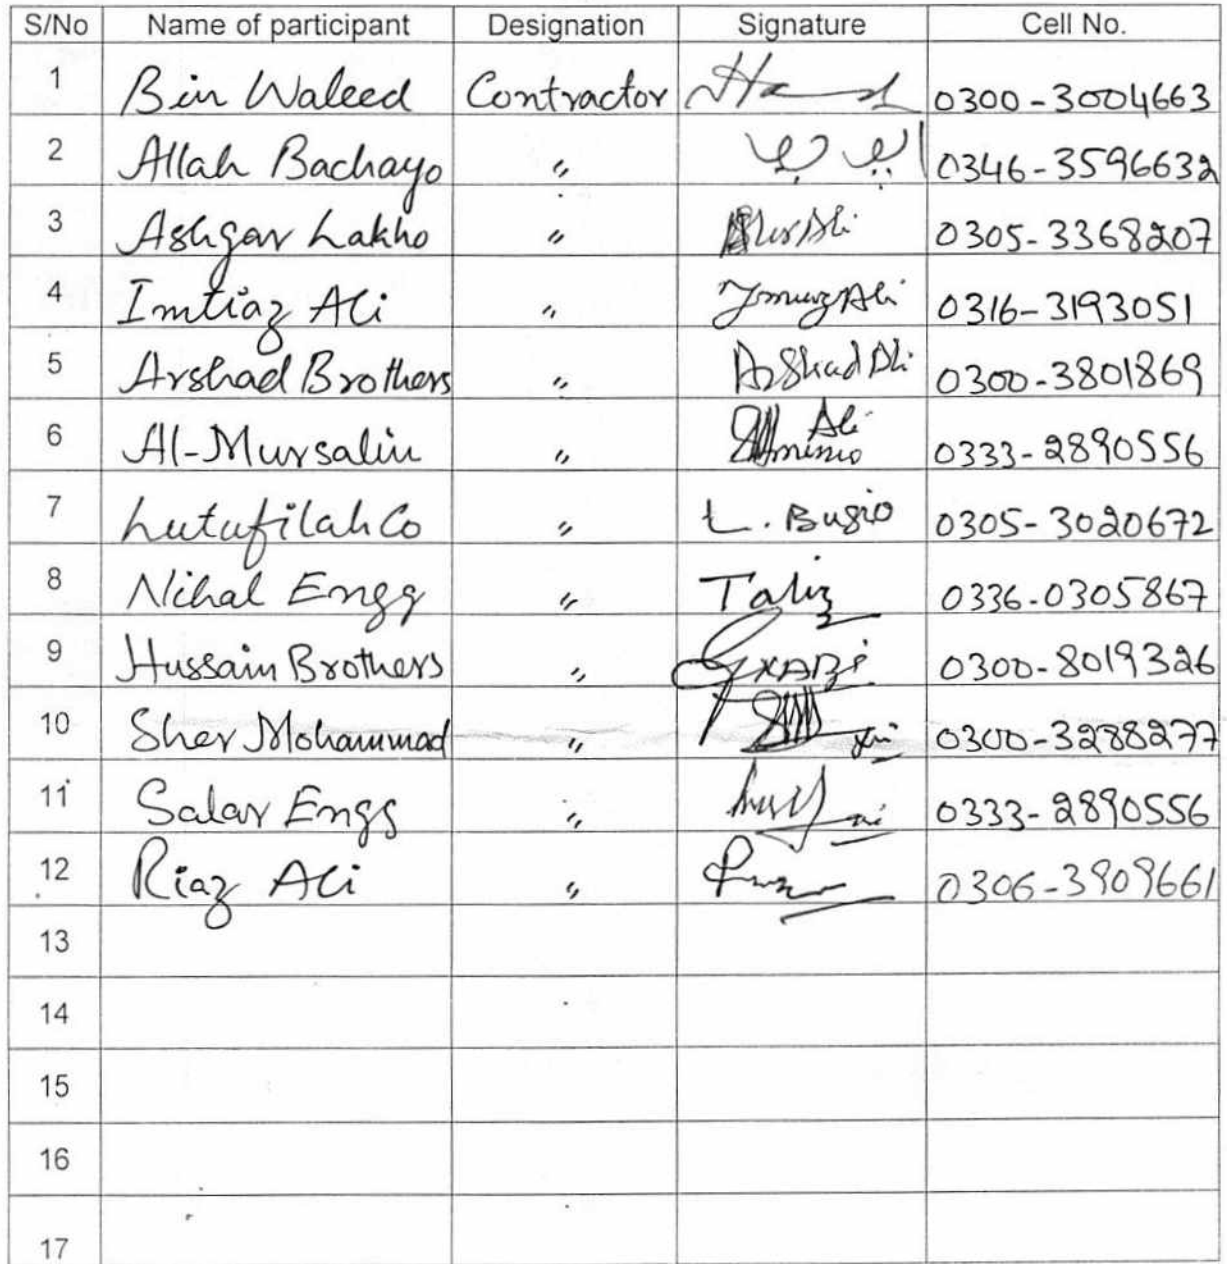 S/No Name of participant Designation Signature Cell No.
1 Bin Waleed Contractor 0300-3004663
2 Allah Bachayo " 0346-3596632
3 Ashgar Lakho " 0305-3368207
4 Imtiaz Ali " 0316-3193051
5 Arshad Brothers " Arshad Ali 0300-3801869
6 Al-Mursalin " Ali 0333-2890556
7 Lutufilah Co " L. Bugio 0305-3020672
8 Nihal Engg " 0336-0305867
9 Hussain Brothers " 0300-8019326
10 Sher Mohammad " 0300-3288277
11 Salar Engg " 0333-2890556
12 Riaz Ali " 0306-3909661
13
14
15
16
17